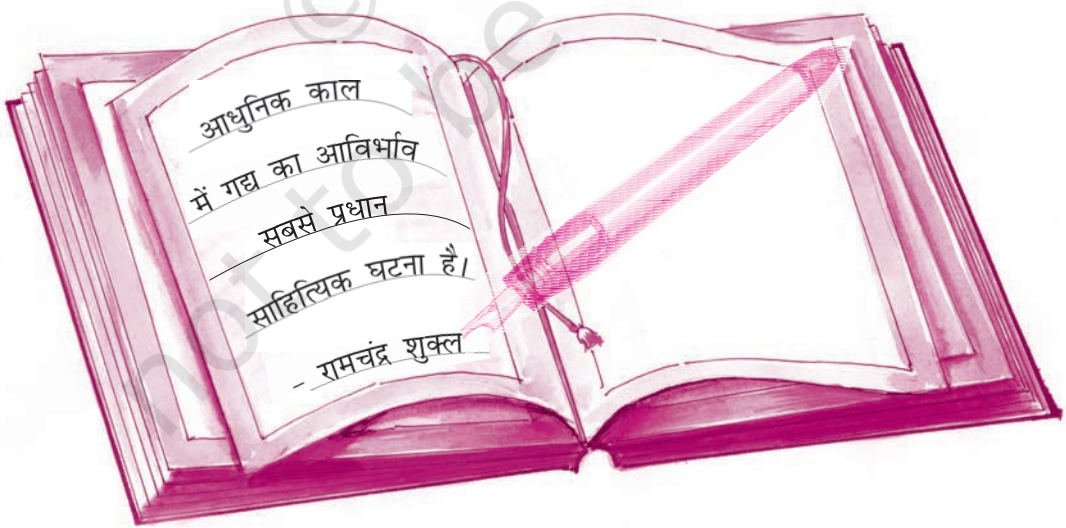 आधुनिक काल
में गद्य का आविर्भाव
सबसे प्रधान
साहित्यिक घटना है।
- रामचंद्र शुक्ल
© not to be